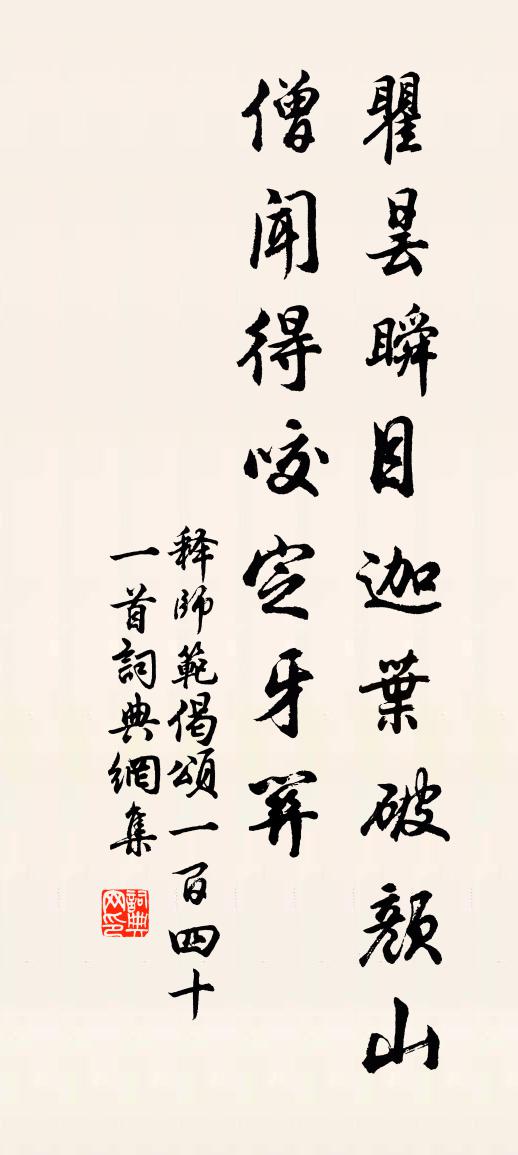 瞿曇瞬目迦葉破顏山
僧聞得咬定牙關
释師範偈頌一百四十
一首詞典網集
詞典网印